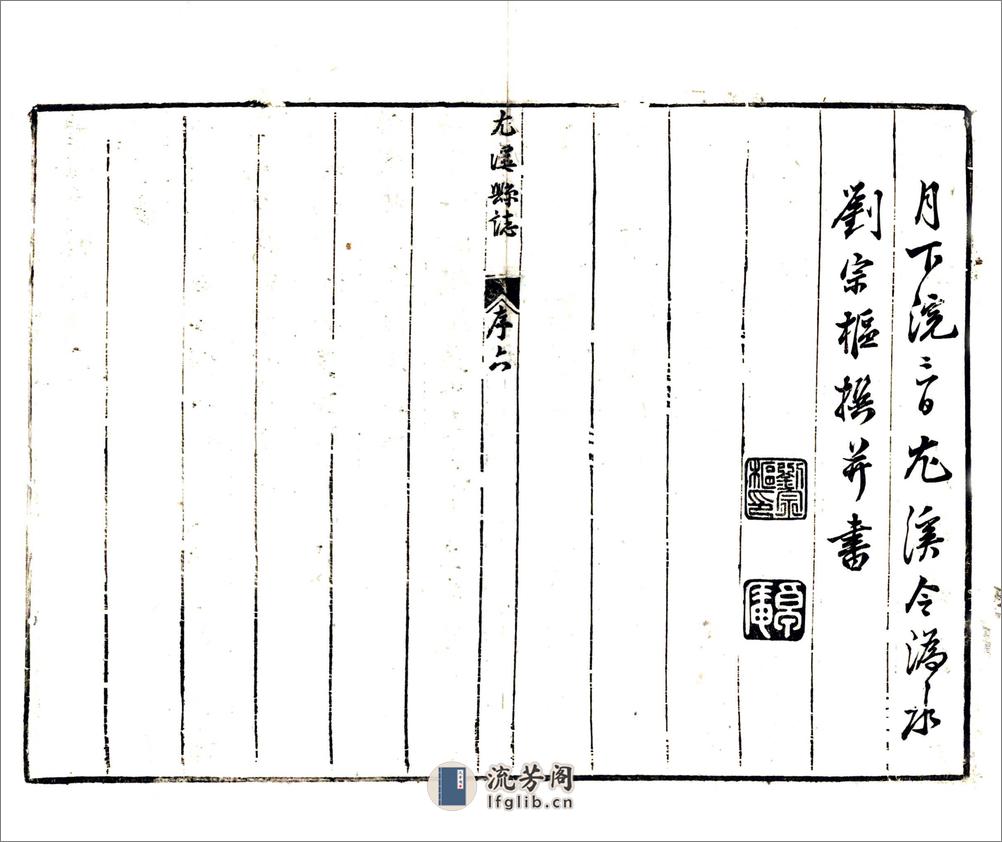 月下浣日尤溪令溈水
劉宗樞撰并書
劉宗樞印
尤溪縣誌
序六
流芳阁
lfglib.cn